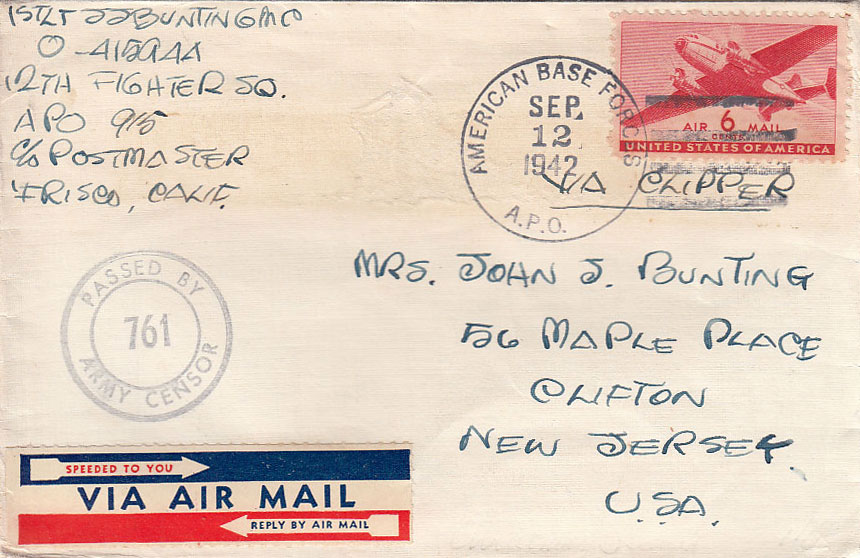 1ST LT JJ BUNTING MC
O-415944
12TH FIGHTER SQ.
APO 915
C/O POSTMASTER
FRISCO, CALIF.
AMERICAN BASE FORCES
SEP.
12
1942
A.P.O.
AIR 6 MAIL
CENTS
UNITED STATES OF AMERICA
VIA CLIPPER
PASSED BY
761
ARMY CENSOR
MRS. JOHN J. BUNTING
56 MAPLE PLACE
CLIFTON
NEW JERSEY.
U.S.A.
SPEEDED TO YOU
VIA AIR MAIL
REPLY BY AIR MAIL